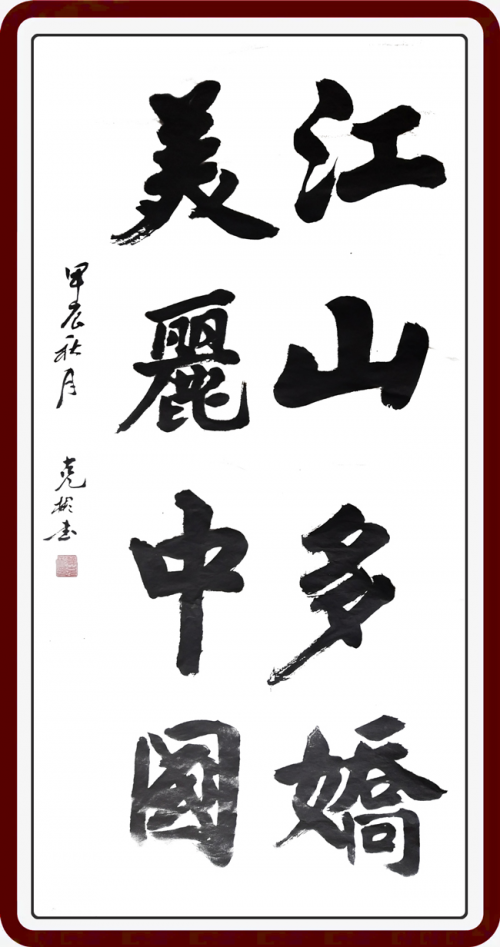 江山多嬌
美麗中國
甲辰秋月
書